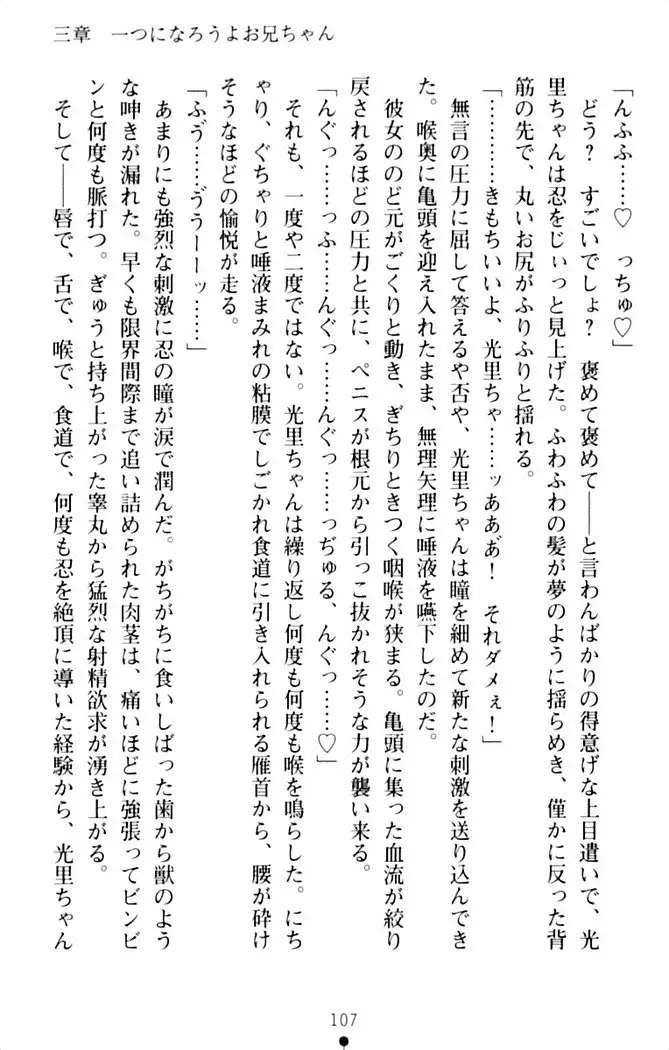 三章　一つになろうよお兄ちゃん
「んふふ……♡　っちゅ♡」
　どう？　すごいでしょ？　褒めて褒めて――と言わんばかりの得意げな上目遣いで、光
里ちゃんは忍をじぃっと見上げた。ふわふわの髪が夢のように揺らめき、僅かに反った背
筋の先で、丸いお尻がふりふりと揺れる。
「…………きもちいいよ、光里ちゃ……ッあああ゛！　それダメぇ！」
　無言の圧力に屈して答えるや否や、光里ちゃんは瞳を細めて新たな刺激を送り込んでき
た。喉奥に亀頭を迎え入れたまま、無理矢理に唾液を嚥下したのだ。
　彼女ののど元がごくりと動き、ぎちりときつく咽喉が狭まる。亀頭に集った血流が絞り
戻されるほどの圧力と共に、ペニスが根元から引っこ抜かれそうな力が襲い来る。
「んぐっ……っふ……んぐっ……んぐっ……っぢゅる、んぐっ……♡」
　それも、一度や二度ではない。光里ちゃんは繰り返し何度も何度も喉を鳴らした。にち
ゃり、ぐちゃりと唾液まみれの粘膜でしごかれ食道に引き入れられる雁首から、腰が砕け
そうなほどの愉悦が走る。
「ふゔ……ゔうーーッ……」
　あまりにも強烈な刺激に忍の瞳が涙で潤んだ。がちがちに食いしばった歯から獣のよう
な呻きが漏れた。早くも限界間際まで追い詰められた肉茎は、痛いほどに強張ってビンビ
ンと何度も脈打つ。ぎゅうと持ち上がった睾丸から猛烈な射精欲求が湧き上がる。
　そして――唇で、舌で、喉で、食道で、何度も忍を絶頂に導いた経験から、光里ちゃん
107